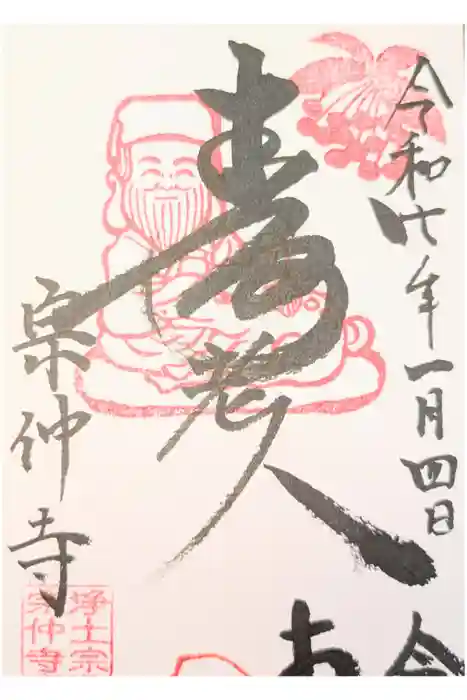 令和七年一月四日
寿老人
宗仲寺
浄土宗
宗仲寺
令